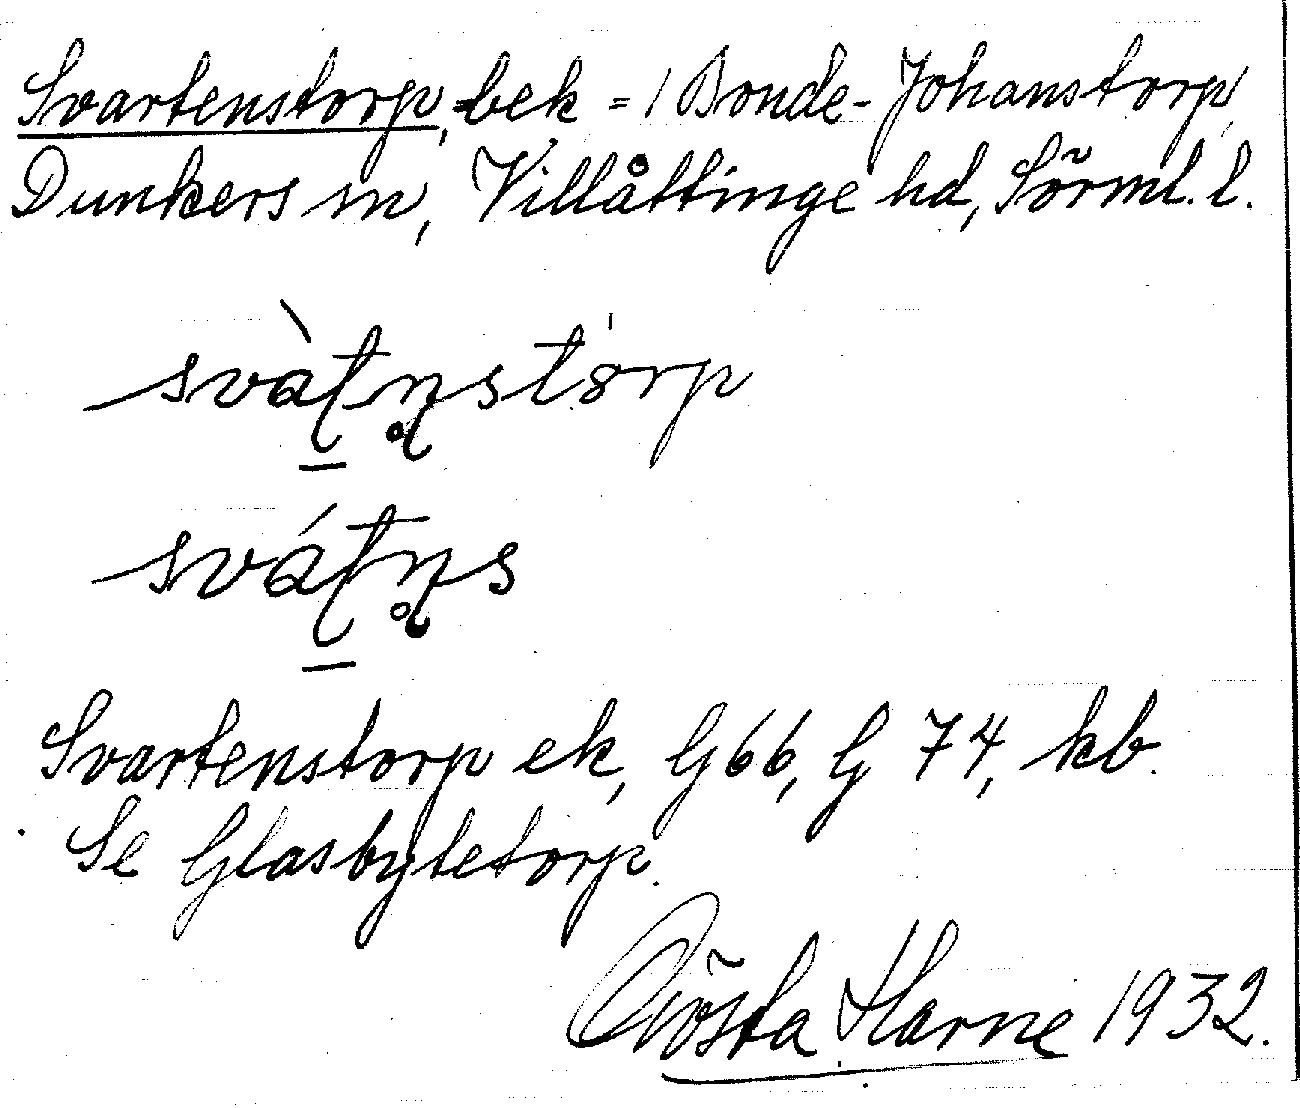 Svartenstorp, bek = / Bonde-Johanstorp/
Dunkers sn, Villåttinge hd, Sörml. l.
svàʈɳ̥stॱ8rp
sváʈɳ̥s
Svartenstorp ek, G66, G 74, kb.
Se Glasbytetorp.
Gösta Harne 1932.